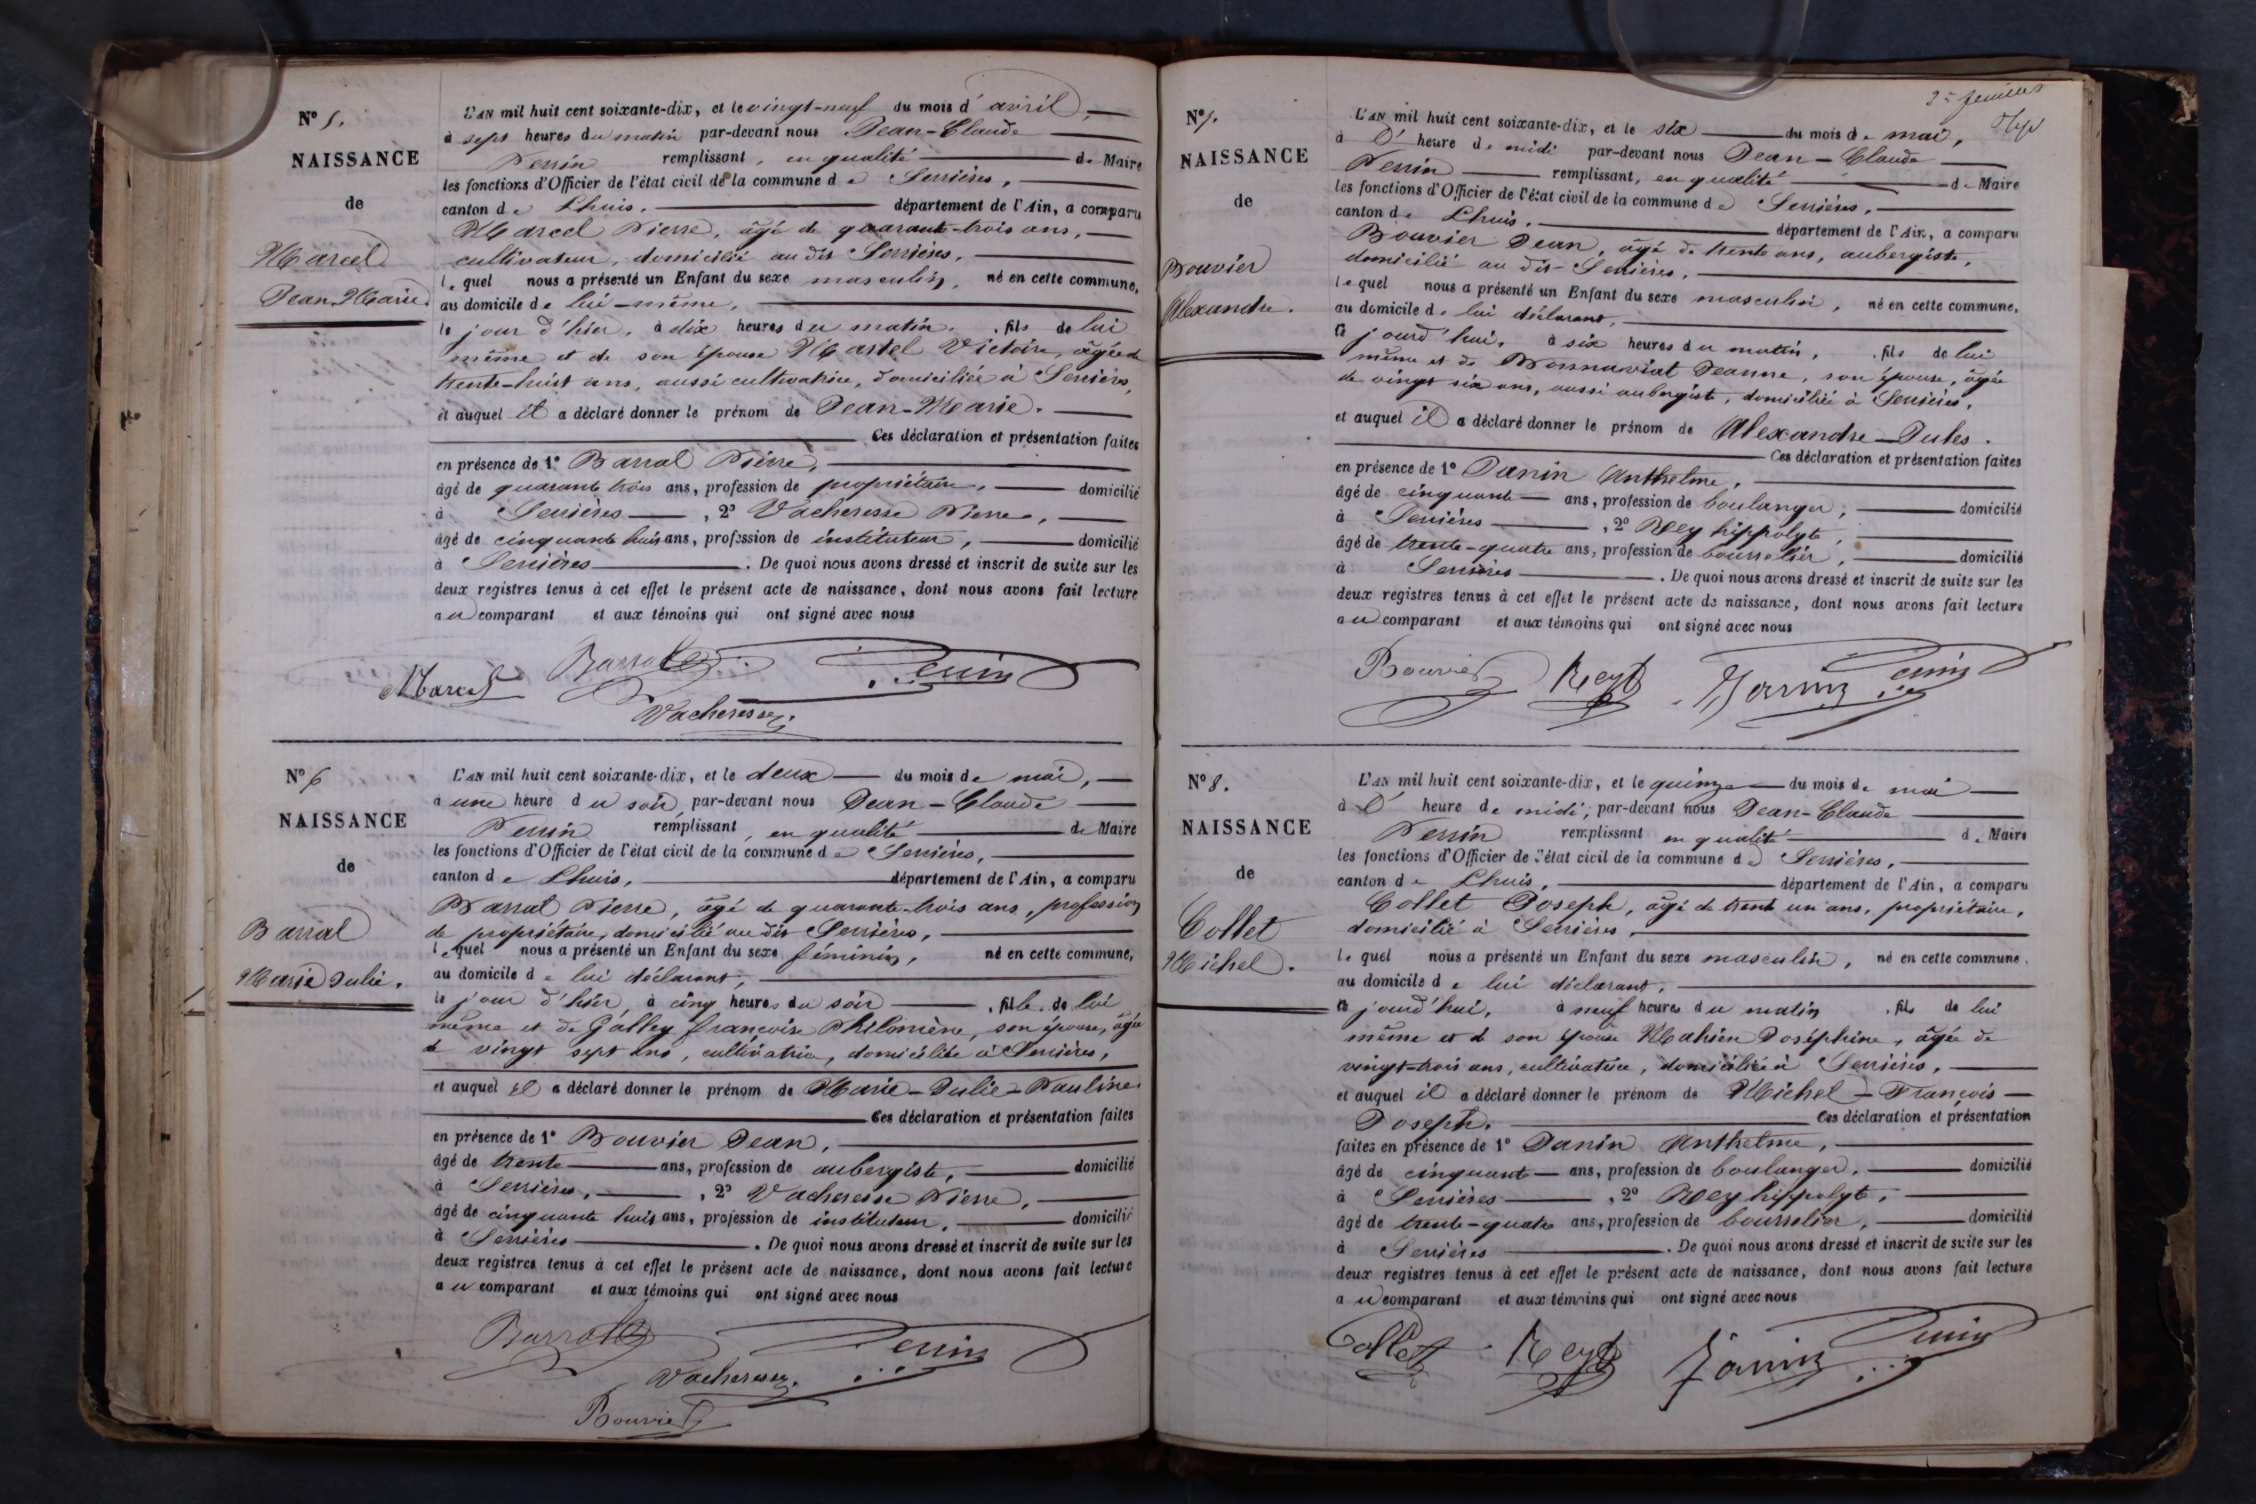 N° 5.
NAISSANCE
de
Marcel
Jean Marie.
L'AN mil huit cent soixante-dix, et le vingt-neuf du mois d'avril,
à sept heures du matin par-devant nous Jean-Claude
Perrin remplissant, en qualité de Maire
les fonctions d'Officier de l'état civil de la commune de Serrières,
canton de Lhuis, département de l'Ain, a comparu
Marcel Pierre, âgé de quarante-trois ans,
cultivateur, domicilié au dit Serrières,
lequel nous a présenté un Enfant du sexe masculin, né en cette commune,
au domicile de lui-même,
le jour d'hier, à dix heures du matin, fils de lui
même et de son épouse Martel Victoire, âgée de
trente-huit ans, aussi cultivatrice, domiciliée à Serrières,
et auquel il a déclaré donner le prénom de Jean-Marie.
Ces déclaration et présentation faites
en présence de 1° Barral Pierre,
âgé de quarante trois ans, profession de propriétaire, domicilié
à Serrières, 2° Vacheresse Pierre,
âgé de cinquante huit ans, profession de instituteur, domicilié
à Serrières. De quoi nous avons dressé et inscrit de suite sur les
deux registres tenus à cet effet le présent acte de naissance, dont nous avons fait lecture
au comparant et aux témoins qui ont signé avec nous
Marcel Barral Perrin
Vacheresse
N° 6
NAISSANCE
de
Barral
Marie Julie.
L'AN mil huit cent soixante-dix, et le deux du mois de mai,
à une heure du soir, par-devant nous Jean-Claude
Perrin remplissant, en qualité de Maire
les fonctions d'Officier de l'état civil de la commune de Serrières,
canton de Lhuis, département de l'Ain, a comparu
Barral Pierre, âgé de quarante-trois ans, profession
de propriétaire, domicilié au dit Serrières,
lequel nous a présenté un Enfant du sexe féminin, né en cette commune,
au domicile de lui déclarant,
le jour d'hier, à cinq heures du soir, fille de lui
même et de Galley françoise Philomène, son épouse, âgée
de vingt sept ans, cultivatrice, domiciliée à Serrières,
et auquel il a déclaré donner le prénom de Marie-Julie-Pauline
Ces déclaration et présentation faites
en présence de 1° Bouvier Jean,
âgé de trente ans, profession de aubergiste, domicilié
à Serrières, 2° Vacheresse Pierre,
âgé de cinquante huit ans, profession de instituteur, domicilié
à Serrières. De quoi nous avons dressé et inscrit de suite sur les
deux registres tenus à cet effet le présent acte de naissance, dont nous avons fait lecture
au comparant et aux témoins qui ont signé avec nous
Barral Perrin
Vacheresse
Bouvier
2e feuillet
N° 7.
NAISSANCE
de
Bouvier
Alexandre.
L'AN mil huit cent soixante-dix, et le six du mois de mai,
à l'heure de midi par-devant nous Jean-Claude
Perrin remplissant, en qualité de Maire
les fonctions d'Officier de l'état civil de la commune de Serrières,
canton de Lhuis, département de l'Ain, a comparu
Bouvier Jean, âgé de trente ans, aubergiste,
domicilié au dit-Serrières,
lequel nous a présenté un Enfant du sexe masculin, né en cette commune,
au domicile de lui déclarant,
ce jourd'hui, à six heures du matin, fils de lui
même et de Jeanne, son épouse, âgée
de vingt six ans, aussi aubergiste, domiciliée à Serrières,
et auquel il a déclaré donner le prénom de Alexandre-Jules.
Ces déclaration et présentation faites
en présence de 1° Janin Anthelme,
âgé de cinquante ans, profession de boulanger, domicilié
à Serrières, 2° Rey hippolyte,
âgé de trente-quatre ans, profession de bourrelier, domicilié
à Serrières. De quoi nous avons dressé et inscrit de suite sur les
deux registres tenus à cet effet le présent acte de naissance, dont nous avons fait lecture
au comparant et aux témoins qui ont signé avec nous
Bouvier Rey Janin Perrin
N° 8.
NAISSANCE
de
Collet
Michel.
L'AN mil huit cent soixante-dix, et le quinze du mois de mai
à l'heure de midi, par-devant nous Jean-Claude
Perrin remplissant en qualité de Maire
les fonctions d'Officier de l'état civil de la commune de Serrières,
canton de Lhuis, département de l'Ain, a comparu
Collet Joseph, âgé de trente un ans, propriétaire,
domicilié à Serrières,
lequel nous a présenté un Enfant du sexe masculin, né en cette commune,
au domicile de lui déclarant,
ce jourd'hui, à neuf heures du matin, fils de lui
même et de son épouse Mahien Joséphine, âgée de
vingt-trois ans, cultivatrice, domiciliée à Serrières,
et auquel il a déclaré donner le prénom de Michel-François-
Joseph. Ces déclaration et présentation
faites en présence de 1° Janin Anthelme,
âgé de cinquante ans, profession de boulanger, domicilié
à Serrières, 2° Rey hippolyte,
âgé de trente-quatre ans, profession de bourrelier, domicilié
à Serrières. De quoi nous avons dressé et inscrit de suite sur les
deux registres tenus à cet effet le présent acte de naissance, dont nous avons fait lecture
au comparant et aux témoins qui ont signé avec nous
Collet Rey Janin Perrin